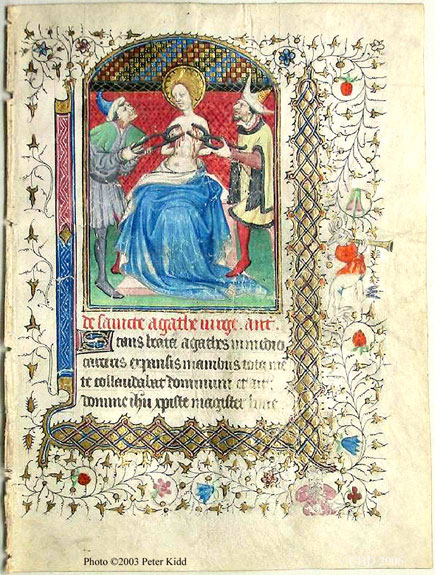 de sancte agathe virge. ant.
Stans beata agathes in medio
carceris expansis manibus tota me
te collaudabat dominum et
domine ihu xpiste magister bone
Photo ©2003 Peter Kidd